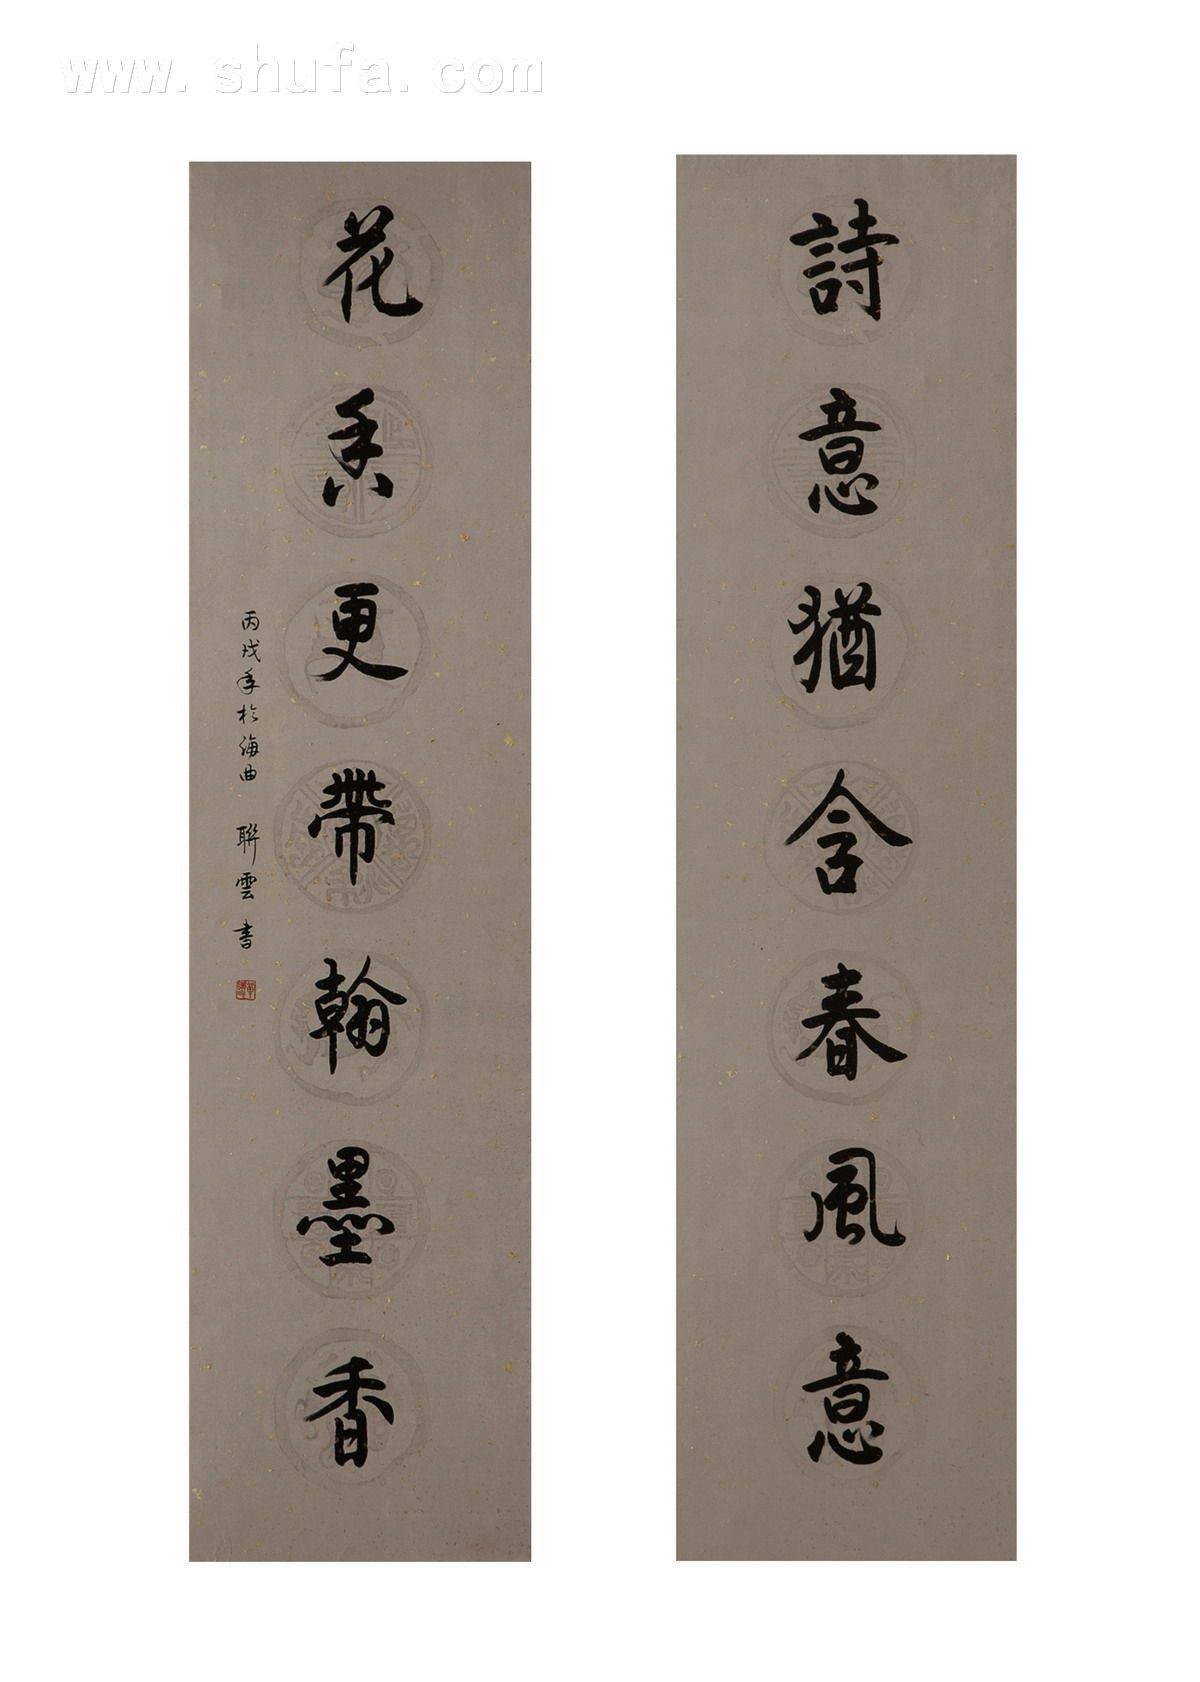 www.shufa.com
詩意猶含春風意
花香更帶翰墨香
丙戌年於海曲 聯雲書